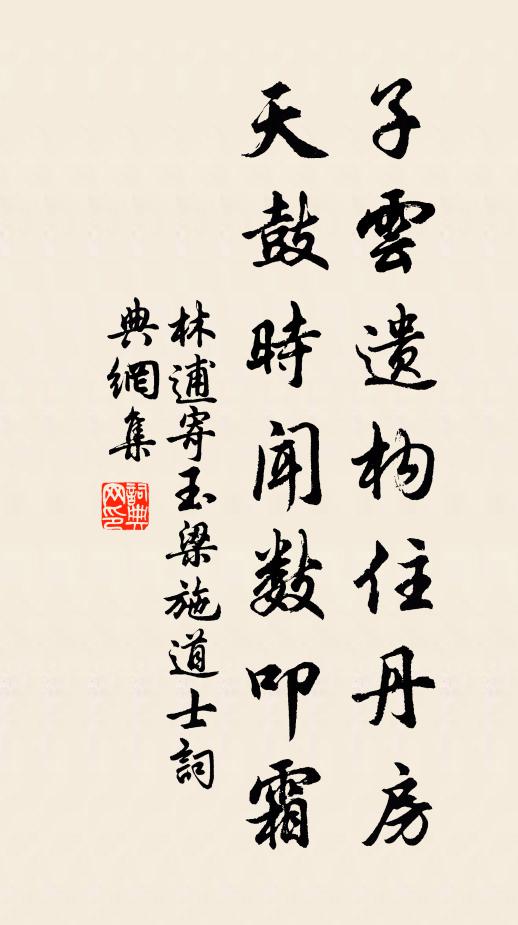 子雲遺构住丹房
天鼓時聞数叩霜
林逋寄玉梁施道士詞
典網集
詞典網印